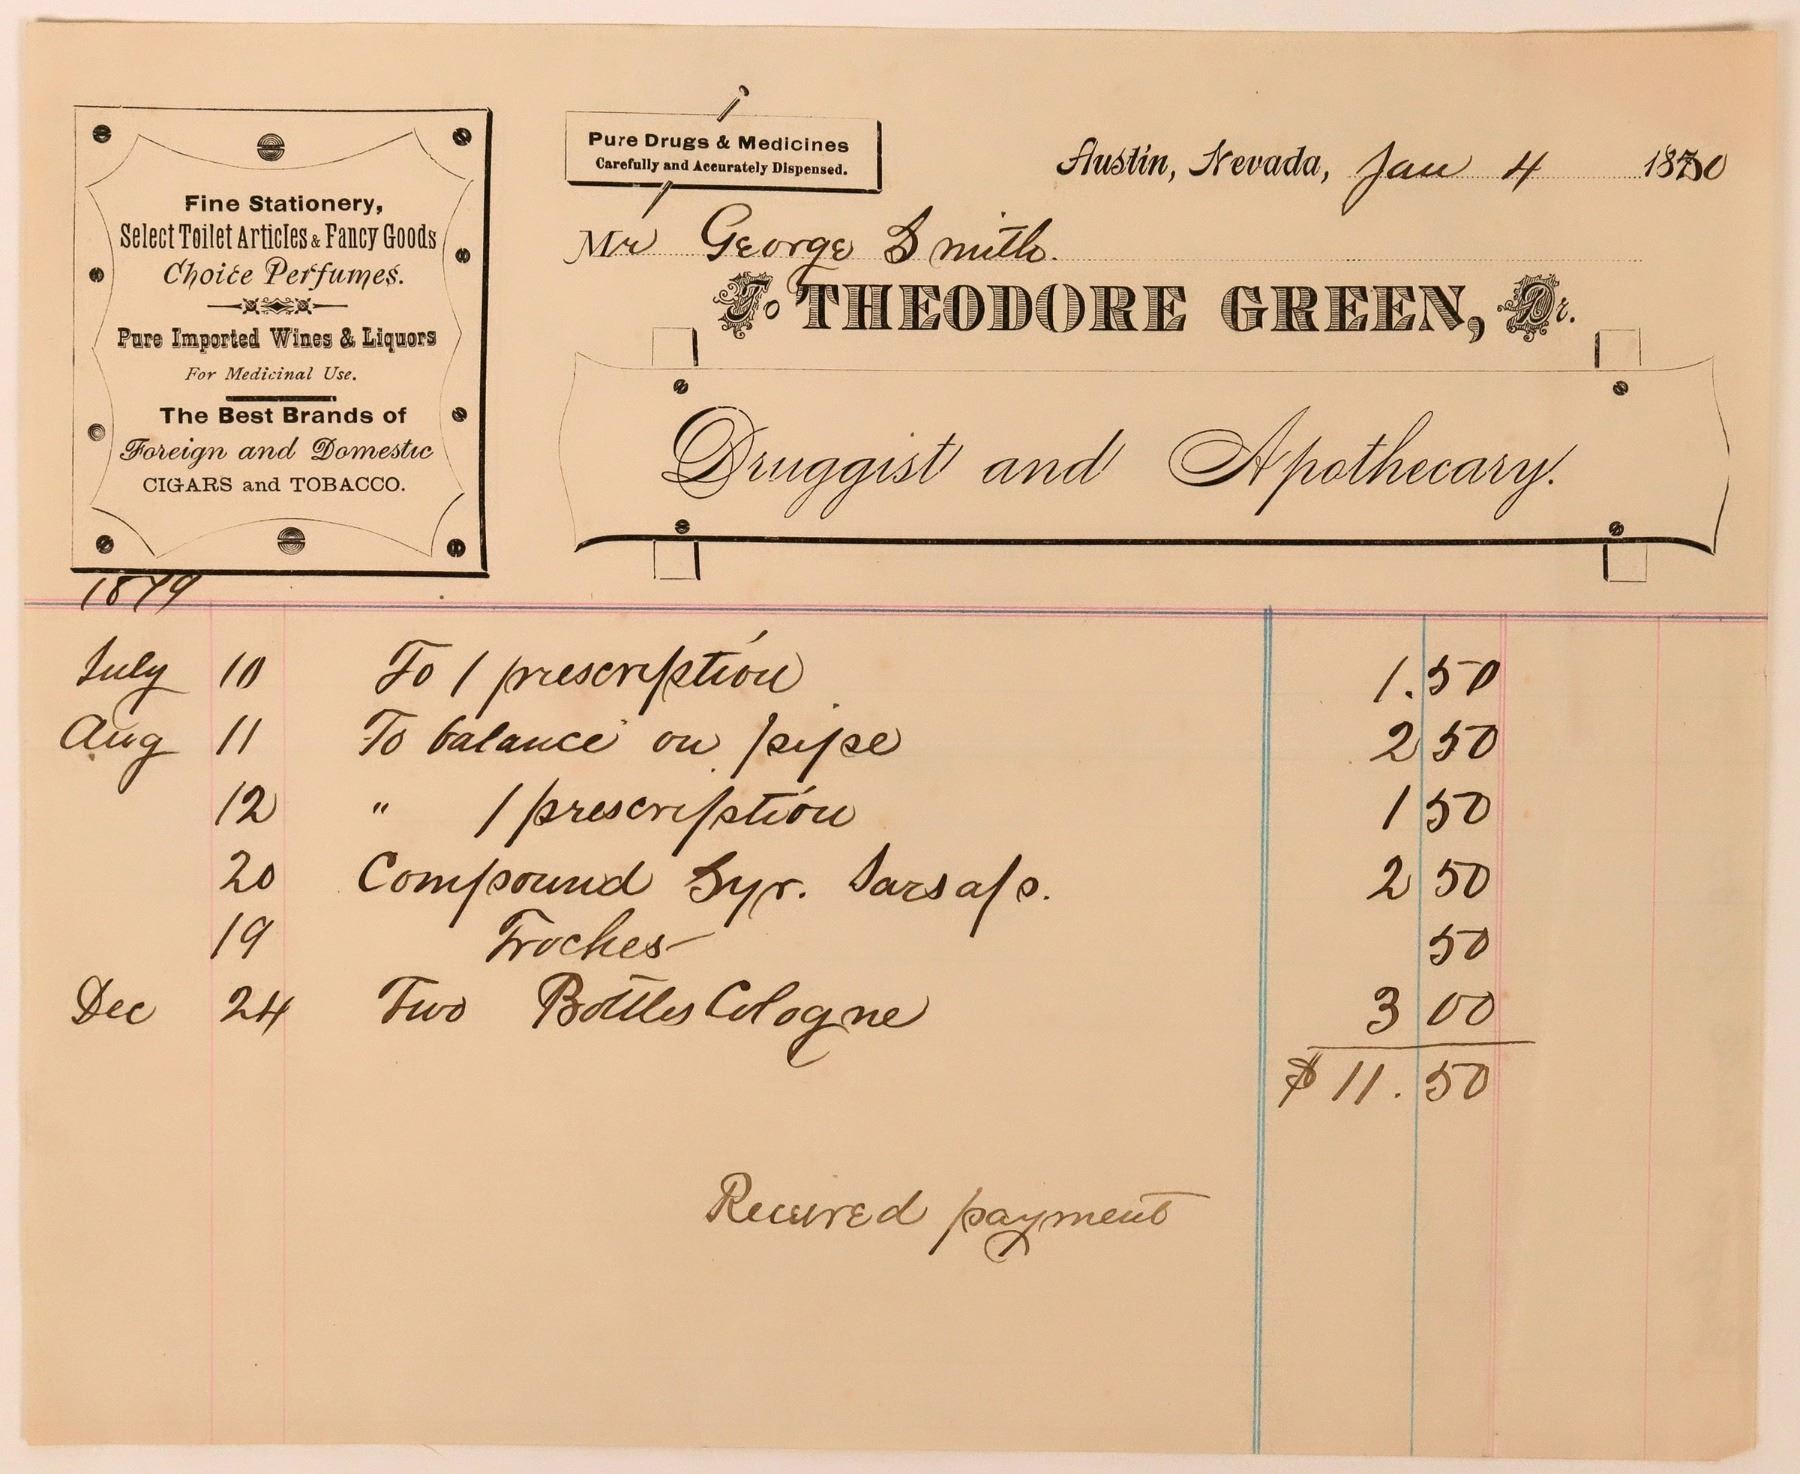 Fine Stationery,
Select Toilet Articles & Fancy Goods
Choice Perfumes.
Pure Imported Wines & Liquors
For Medicinal Use.
The Best Brands of
Foreign and Domestic
CIGARS and TOBACCO.
Pure Drugs & Medicines
Carefully and Accurately Dispensed.
Austin, Nevada, Jan 4 1880
Mr George Smith.
To THEODORE GREEN, Dr.
Druggist and Apothecary.
1879
July 10 To 1 prescription 1.50
Aug 11 To balance on pipe 2 50
12 " 1 prescription 1 50
20 Compound Syr. Sarsap. 2 50
19 Troches 50
Dec 24 Two Bottles Cologne 3 00
$ 11.50
Received payment